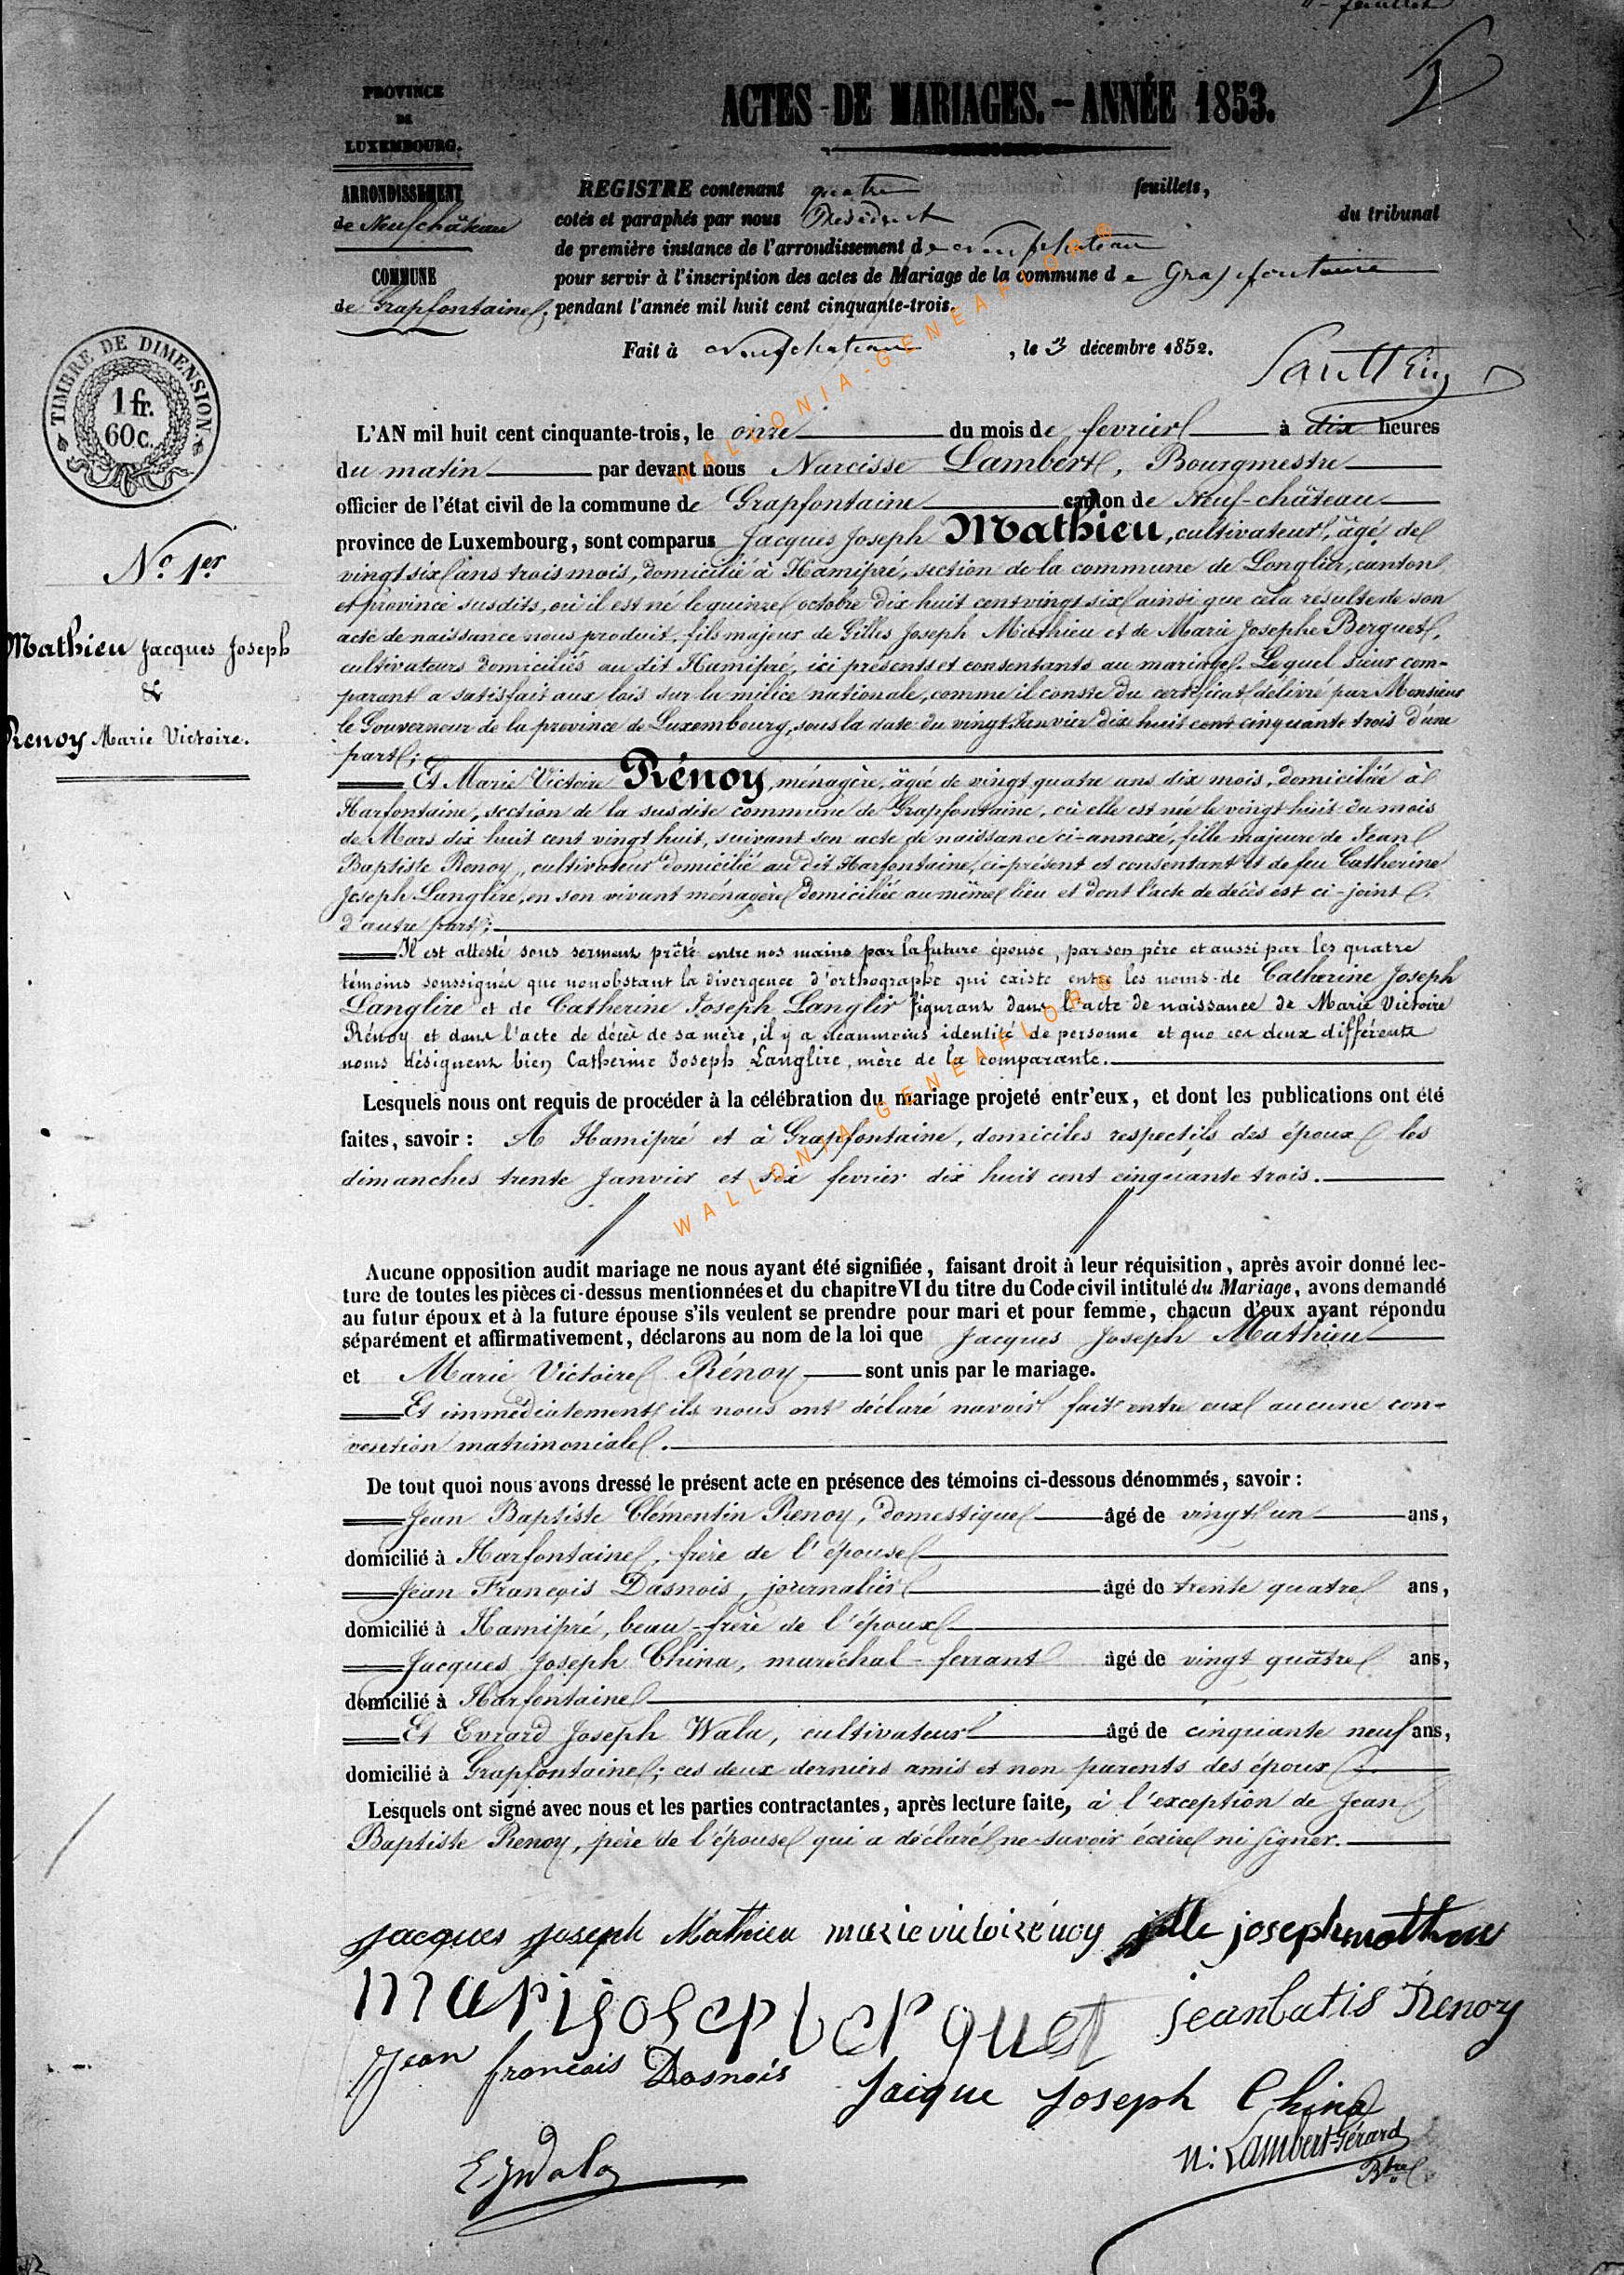 PROVINCE
DE
LUXEMBOURG.
ARRONDISSEMENT
de Neufchâteau
COMMUNE
de Grapfontaine.
ACTES DE MARIAGES. — ANNÉE 1853.
REGISTRE contenant quatre feuillets,
cotés et paraphés par nous Président du tribunal
de première instance de l'arrondissement de Neufchateau
pour servir à l'inscription des actes de Mariage de la commune de Grapfontaine
pendant l'année mil huit cent cinquante-trois.
Fait à Neufchateau, le 3 décembre 1852.
TIMBRE DE DIMENSION
1 fr.
60 c.
No. 1er
Mathieu Jacques Joseph
&
Renoy Marie Victoire.
L'AN mil huit cent cinquante-trois, le onze du mois de fevrier à dix heures
du matin par devant nous Narcisse Lambert, Bourgmestre
officier de l'état civil de la commune de Grapfontaine canton de Neuf-château
province de Luxembourg, sont comparus Jacques Joseph Mathieu, cultivateur, âgé de
vingt six ans trois mois, domicilié à Hamipré, section de la commune de Longlier, canton
et province susdits, où il est né le quinze octobre dix huit cent vingt six ainsi que cela resulte de son
acte de naissance nous produit, fils majeur de Gilles Joseph Mathieu et de Marie Josephe Berquet,
cultivateurs domiciliés au dit Hamipré, ici présents et consentants au mariage. Lequel sieur com-
parant a satisfait aux lois sur la milice nationale, comme il conste du certificat délivré par Monsieur
le Gouverneur de la province de Luxembourg, sous la date du vingt Janvier dix huit cent cinquante trois d'une
part;
Et Marie Victoire Rénoy, ménagère, âgée de vingt quatre ans dix mois, domiciliée à
Harfontaine, section de la susdite commune de Grapfontaine, où elle est née le vingt huit du mois
de Mars dix huit cent vingt huit, suivant son acte de naissance ci-annexé, fille majeure de Jean
Baptiste Renoy, cultivateur domicilié au dit Harfontaine, ci-présent et consentant et de feu Catherine
Joseph Langlire, en son vivant ménagère domiciliée au même lieu et dont l'acte de décès est ci-joint
d'autre part;
Il est attesté sous serment prêté entre nos mains par la future épouse, par son père et aussi par les quatre
témoins soussignés que nonobstant la divergence d'orthographe qui existe entre les noms de Catherine Joseph
Langlire et de Catherine Joseph Langlir figurant dans l'acte de naissance de Marie Victoire
Rénoy et dans l'acte de décès de sa mère, il y a néanmoins identité de personne et que ces deux différents
noms désignent bien Catherine Joseph Langlire, mère de la comparante.
Lesquels nous ont requis de procéder à la célébration du mariage projeté entr'eux, et dont les publications ont été
faites, savoir : A Hamipré et à Grapfontaine, domiciles respectifs des époux les
dimanches trente Janvier et six fevrier dix huit cent cinquante trois.
Aucune opposition audit mariage ne nous ayant été signifiée, faisant droit à leur réquisition, après avoir donné lec-
ture de toutes les pièces ci-dessus mentionnées et du chapitre VI du titre du Code civil intitulé du Mariage, avons demandé
au futur époux et à la future épouse s'ils veulent se prendre pour mari et pour femme, chacun d'eux ayant répondu
séparément et affirmativement, déclarons au nom de la loi que Jacques Joseph Mathieu
et Marie Victoire Rénoy sont unis par le mariage.
Et immédiatement ils nous ont déclaré n'avoir fait entre eux aucune con-
vention matrimoniale.
De tout quoi nous avons dressé le présent acte en présence des témoins ci-dessous dénommés, savoir :
Jean Baptiste Clémentin Renoy, domestique âgé de vingt un ans,
domicilié à Harfontaine, frère de l'épouse
Jean François Dasnois, journalier âgé de trente quatre ans,
domicilié à Hamipré, beau-frère de l'époux
Jacques Joseph China, maréchal-ferrant âgé de vingt quatre ans,
domicilié à Harfontaine
Et Evrard Joseph Wala, cultivateur âgé de cinquante neuf ans,
domicilié à Grapfontaine; ces deux derniers amis et non parents des époux
Lesquels ont signé avec nous et les parties contractantes, après lecture faite, à l'exception de Jean
Baptiste Renoy, père de l'épouse qui a déclaré ne savoir écrire ni signer.
jacques joseph Mathieu marie victoire rénoy jille joseph mathieu
mari josep berquet jeanbatis Renoy
Jean francois Dasnois Jaique Joseph China
EJWala N: Lambert-Gérard
Btre
WALLONIA-GENEAFLOR©
WALLONIA-GENEAFLOR©